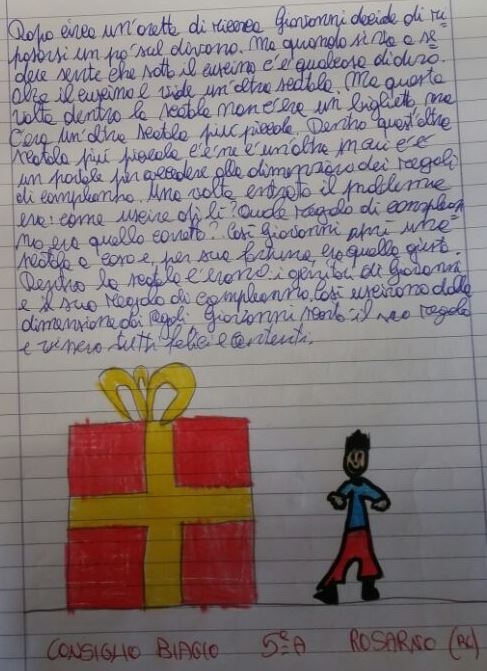 Dopo circa un'oretta di ricerca Giovanni decide di ri=
posarsi un po' sul divano. Ma quando si va a se=
dere sente che sotto il cuscino c'è qualcosa di duro.
alza il cuscino e vide un'altra scatola. Ma questa
volta dentro la scatola non c'era un biglietto, ma
c'era un'altra scatola più piccola. Dentro quest'altra
scatola più piccola c'è ne è un'altra ma c'è
un portale per accedere alla dimensione dei regali
di compleanno. Una volta entrato il problema
era: come uscire di lì? Quale regalo di complean=
no era quello corretto? Così Giovanni aprì una
scatola a caso e, per sua fortuna, era quella giusta.
Dentro la scatola c'erano i genitori di Giovanni
e il suo regalo di compleanno. Così uscirono dalla
dimensione dei regali. Giovanni il suo regalo
e vissero tutti felici e contenti.
CONSIGLIO BIAGIO 5ªA ROSARNO (RC)